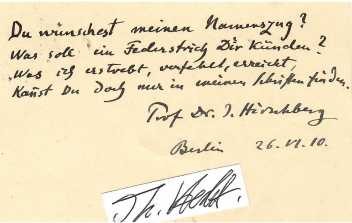 Du wünschest meinen Namenszug?
Was soll ein Federstrich Dir künden?
Was ich erstrebt, verfehlt, erreicht,
Kannst Du doch nur in meinen Schriften finden.
Prof Dr. J. Hirschberg
Berlin 26. VI. 10.
Th.